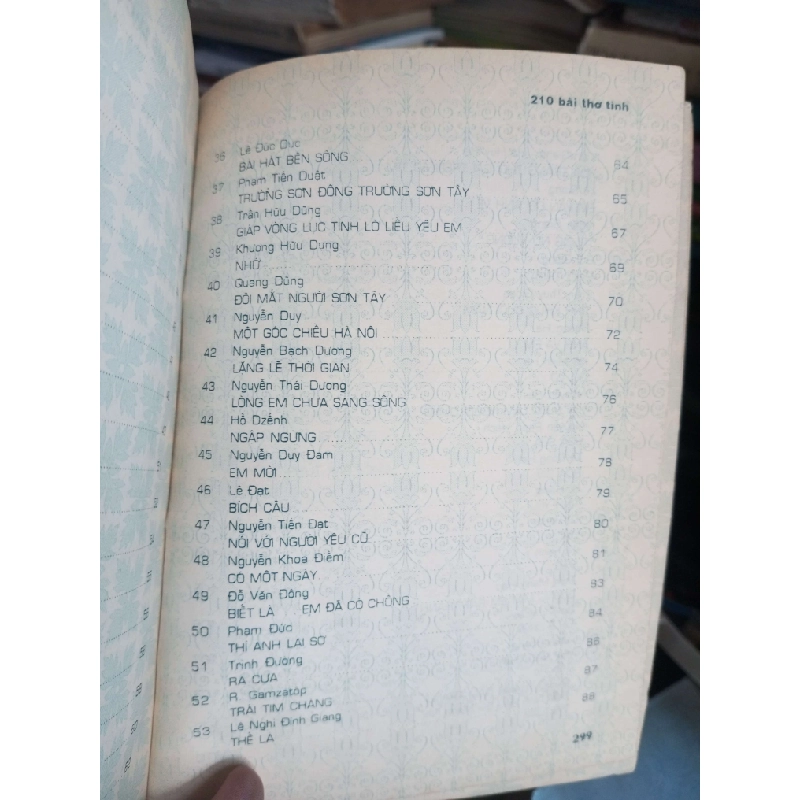 210 bài thơ tình
36 Lê Đức Dục
BÀI HÁT BÊN SÔNG 64
37 Phạm Tiến Duật
TRƯỜNG SƠN ĐÔNG TRƯỜNG SƠN TÂY 65
38 Trần Hữu Dũng
GIÁP VÒNG LỤC TỈNH LÒ LIỀU YÊU EM 67
39 Khương Hữu Dụng
NHỚ 69
40 Quang Dũng
ĐÔI MẮT NGƯỜI SƠN TÂY 70
41 Nguyễn Duy
MỘT GÓC CHIỀU HÀ NỘI 72
42 Nguyễn Bạch Dương
LẶNG LẼ THỜI GIAN 74
43 Nguyễn Thái Dương
LÒNG EM CHƯA SANG SÔNG 76
44 Hồ Dzếnh
NGẬP NGỪNG 77
45 Nguyễn Duy Đàm
EM MỜI 78
46 Lê Đạt
BÍCH CÂU 79
47 Nguyễn Tiến Đạt
NÓI VỚI NGƯỜI YÊU CŨ 80
48 Nguyễn Khoa Điềm
CÓ MỘT NGÀY 81
49 Đỗ Văn Đông
BIẾT LÀ ... EM ĐÃ CÓ CHỒNG 83
50 Phạm Đức 84
THÌ ANH LẠI SỢ
51 Trinh Đường 86
RA CỬA
52 R. Gamzatốp 87
TRÁI TIM CHÀNG
53 Lê Nghị Định Giang 88
THẾ LÀ
299